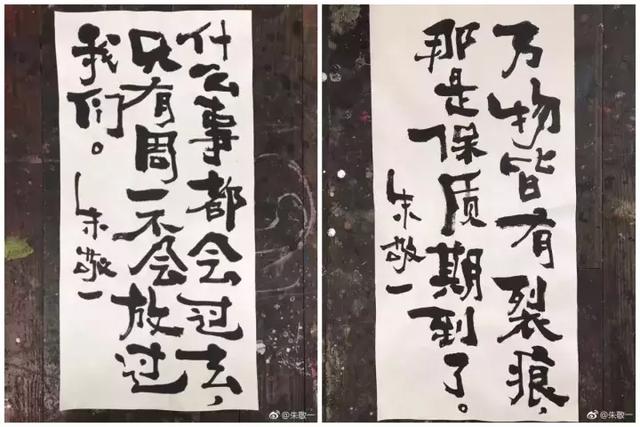 什么事都会过去，
只有周一不会放过
我们。
朱敬一
@朱敬一
万物皆有裂痕，
那是保质期到了。
朱敬一
@朱敬一